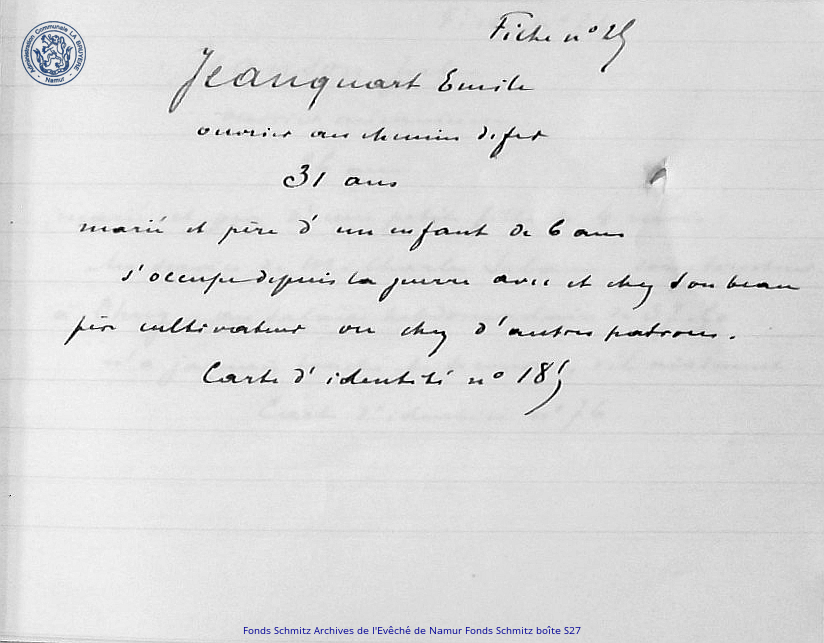 Fiche n° 25
Administration Communale LA BRUYERE
Namur
Jeanquart Emile
ouvrier au chemin de fer
31 ans
marié et père d'un enfant de 6 ans
s'occupe depuis la guerre avec et chez son beau
père cultivateur ou chez d'autres patrons.
Carte d'identité n° 185
Fonds Schmitz Archives de l'Evêché de Namur Fonds Schmitz boîte S27